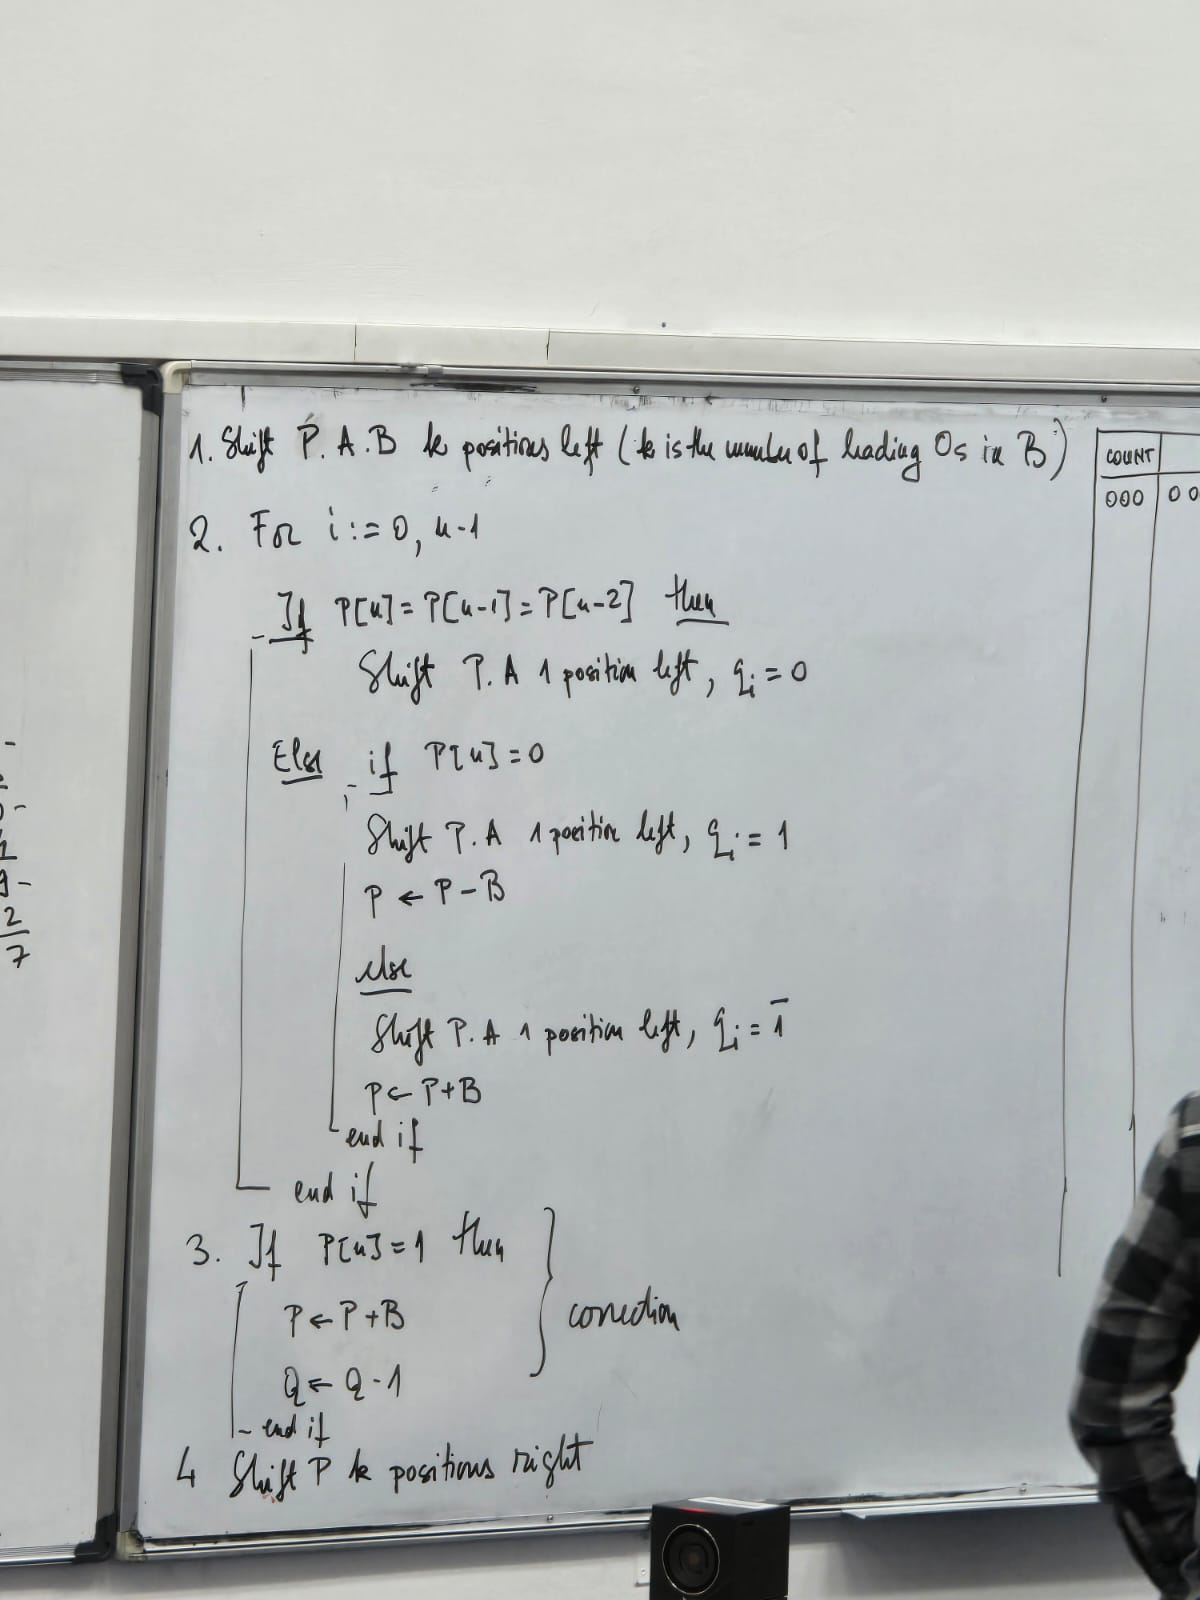 -
0-
1
9-
2
7
1. Shift P. A. B k positions left (k is the number of leading 0s in B)
2. For i := 0, n-1
If P[n] = P[n-1] = P[n-2] then
Shift P. A 1 position left, qi = 0
Else if P[n] = 0
Shift P. A 1 position left, qi = 1
P ← P - B
else
Shift P. A 1 position left, qi = 1̄
P ← P + B
end if
end if
3. If P[n] = 1 then
P ← P + B
Q ← Q - 1
correction
end if
4 Shift P k positions right
COUNT
000 00